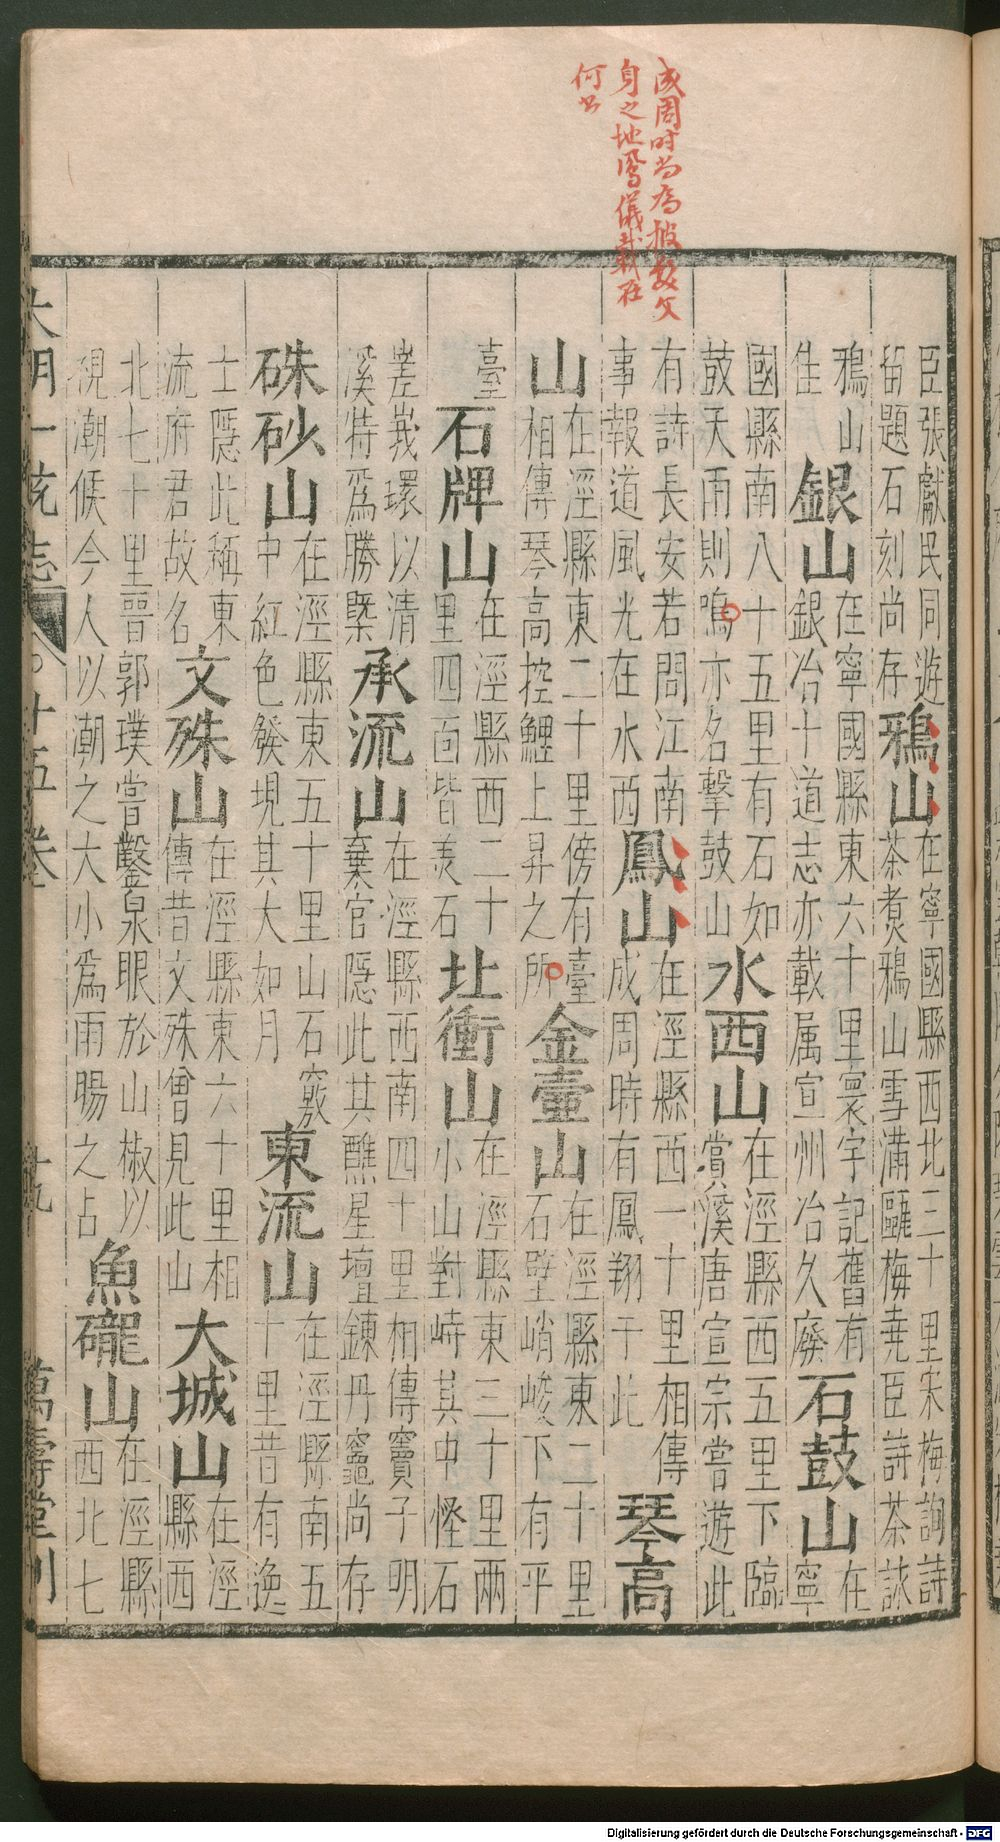 成周时尚为披髮文
身之地鳳儀載在
何书
臣張獻民同遊鴉山在寧國縣西北三十里宋梅詢詩
留題石刻尚存茶煮鴉山雪滿甌梅堯臣詩茶詠
鴉山銀山在寧國縣東六十里寰宇記舊有石鼓山在
隹銀冶十道志亦載属宣州冶久廢寧
國縣南八十五里有石如水西山在涇縣西五里下臨
鼓天雨則鳴亦名擊鼓山賞溪唐宣宗嘗遊此
有詩長安若問江南鳳山在涇縣西一十里相傳琴高
事報道風光在水西成周時有鳳翔于此
山在涇縣東二十里傍有臺金壷山在涇縣東二十里
相傳琴高控鯉上昇之所石壁峭峻下有平
臺石牌山在涇縣西二十址衝山在涇縣東三十里兩
里四面皆羙石小山對峙其中怪石
嵳峩環以清承流山在涇縣西南四十里相傳竇子明
溪特爲勝槩棄官隱此其醮星壇錬丹竈尚存
硃砂山在涇縣東五十里山石竅東流山在涇縣南五
中紅色發現其大如月十里昔有逸
士隱此稱東文殊山在涇縣東六十里相大城山在涇
流府君故名傳昔文殊曽見此山縣西
北七十里晋郭璞甞鑿泉眼於山椒以魚礲山在涇縣
覘潮候今人以潮之大小爲雨暘之占西北七
大明一統志 十五卷 十九 萬壽堂刋
Digitalisierung gefördert durch die Deutsche Forschungsgemeinschaft - DFG